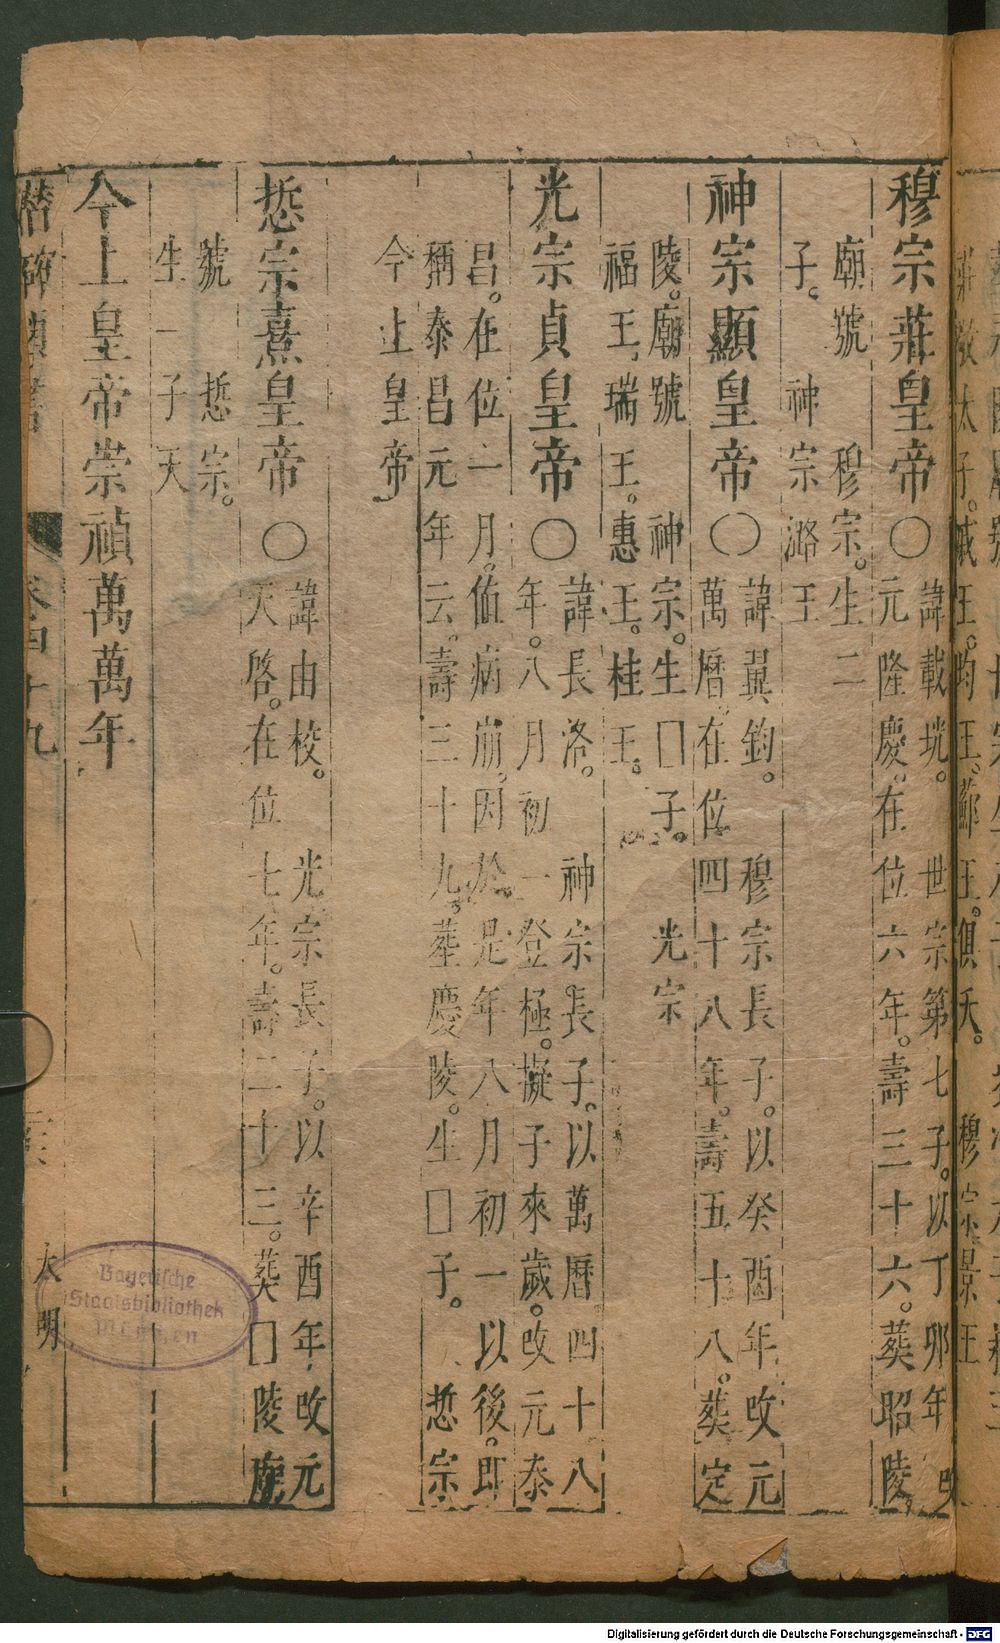 莊敬太子。戚王。均王。薊王。俱夭。 穆宗景王
穆宗莊皇帝〇
諱載垙。 世宗第七子。以丁卯年改
元隆慶。在位六年。壽三十六。葬昭陵。
廟號 穆宗。生二
子。 神宗潞王
神宗顯皇帝〇
諱翼鈞。 穆宗長子。以癸酉年改元
萬曆。在位四十八年。壽五十八。葬定
陵。廟號 神宗。生□子。 光宗
福王。瑞王。惠王。桂王。
光宗貞皇帝〇
諱長洛。 神宗長子。以萬曆四十八
年。八月初一登極。擬子來歲。改元泰
昌。在位一月。值病崩。因於是年八月初一以後。即
稱泰昌元年云。壽三十九。葬慶陵。生□子。 悊宗
今上皇帝
悊宗熹皇帝〇
諱由校。 光宗長子。以辛酉年改元
天啓。在位七年。壽二十三。葬□陵廟
號 悊宗。
生一子夭
今上皇帝崇禎萬萬年
卷四十九 大明
Bayerische
Staatsbibliothek
München
Digitalisierung gefördert durch die Deutsche Forschungsgemeinschaft - DFG